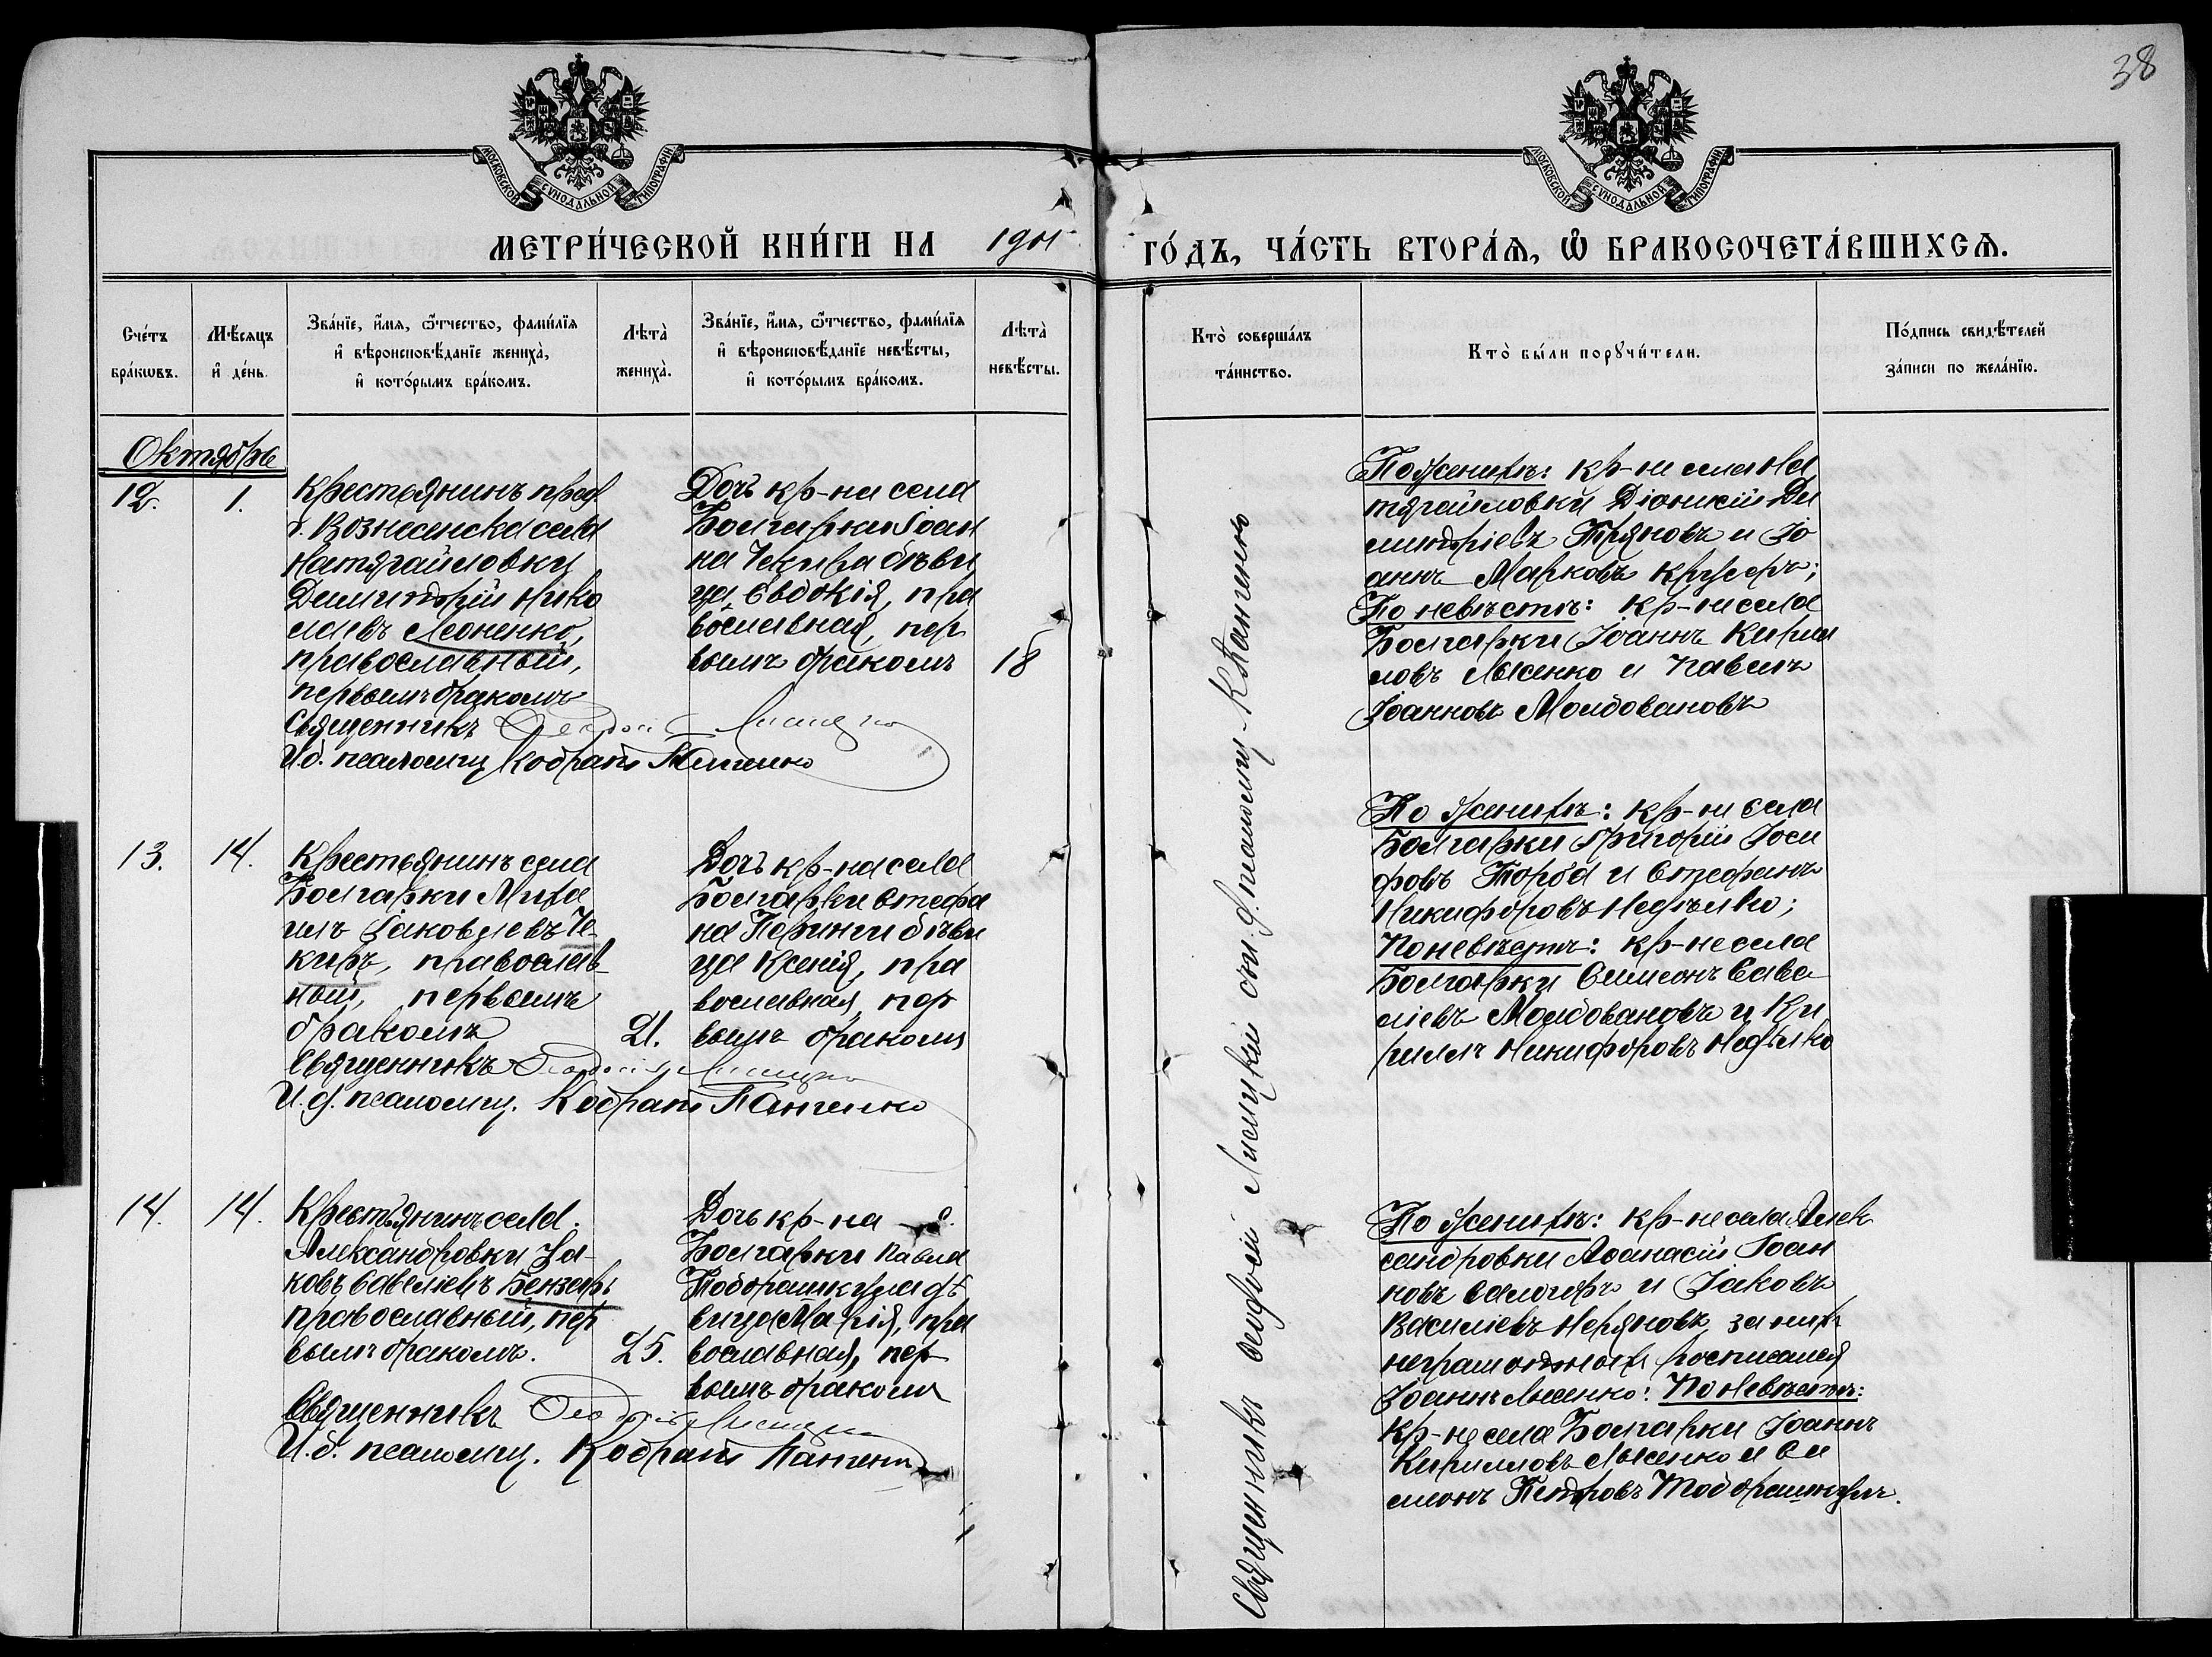 38
МОСКОВСКОЙ СѴНОДАЛЬНОЙ ТИПОГРАФІИ
МОСКОВСКОЙ СѴНОДАЛЬНОЙ ТИПОГРАФІИ
МЕТРИ́ЧЕСКОЙ КНИ́ГИ НА 1901
ГО́ДЪ, ЧА́СТЬ ВТОРА́Ѧ, Ѽ БРАКОСОЧЕТА́ВШИХСѦ.
Сче́тъ бра́кωвъ.
Мѣ́сяцъ и҆ де́нь.
Зва́нїе, и҆́мя, ѻ҆́тчество, фами́лїя
и҆ вѣроисповѣ́данїе жениха̀,
и҆ кото́рымъ бра́комъ.
Лѣта̀ жениха̀.
Зва́нїе, и҆́мя, ѻ҆́тчество, фами́лїя
и҆ вѣроисповѣ́данїе невѣ́сты,
и҆ кото́рымъ бра́комъ.
Лѣта̀ невѣ́сты.
Кто̀ соверша́лъ та́инство.
Кто̀ бы́ли порꙋчи́тели.
По́дпись свидѣ́телей
за́писи по жела́нїю.
Октябрь
12.
1.
Крестьянинъ пред.
г. Вознесенска села
Натягайловки
Димитрій Нико
лаевъ Леоненко,
православный,
первымъ бракомъ
Священникъ Ѳеодосій
И.д. псаломщ. Кодратъ Панченко
Дочь кр-на села
Болгарки Іоан
на дѣви
ца Евдокія, пра
вославная, пер
вымъ бракомъ
18
По женихѣ: кр-не села На
тягайловки Діонисій Ди
митріевъ и Іо
аннъ Марковъ
По невѣстѣ: кр-не села
Болгарки Іоаннъ Кирил
ловъ Лысенко и Павелъ
Іоанновъ Молдовановъ
13.
14.
Крестьянинъ села
Болгарки Миха
илъ Іаковлевъ Че-
киръ, православ-
ный, первымъ
бракомъ
21.
Священникъ Ѳеодосій
И.д. псаломщ. Кодратъ Панченко
Дочь кр-на села
Болгарки Стефа
на дѣви
ца Ксенія, пра
вославная, пер
вымъ бракомъ
По женихѣ: кр-не села
Болгарки Григорій Іоси
фовъ и Стефанъ
Никифоровъ Недѣлко;
По невѣстѣ: кр-не села
Болгарки Симеонъ Саве
ліевъ Молдовановъ и Ки
риллъ Никифоровъ Недѣлко
14.
14.
Крестьянинъ села
Александровки Іа-
ковъ Савеліевъ Бензарь
православный, пер
вымъ бракомъ.
25.
Священникъ Ѳеодосій
И.д. псаломщ. Кодратъ Панченко
Дочь кр-на с.
Болгарки Павла
дѣ
вица Марія, пра
вославная, пер
вымъ бракомъ
По женихѣ: кр-не села Алек
сандровки Аѳанасій Іоан
новъ и Іаковъ
Василіевъ за нихъ
неграмотныхъ росписался
Іоаннъ Лысенко: По невѣстѣ:
кр-не села Болгарки Іоаннъ
Кирилловъ Лысенко и Си
меонъ Петровъ
Священникъ Ѳеодосій и псаломщ. К. Панченко